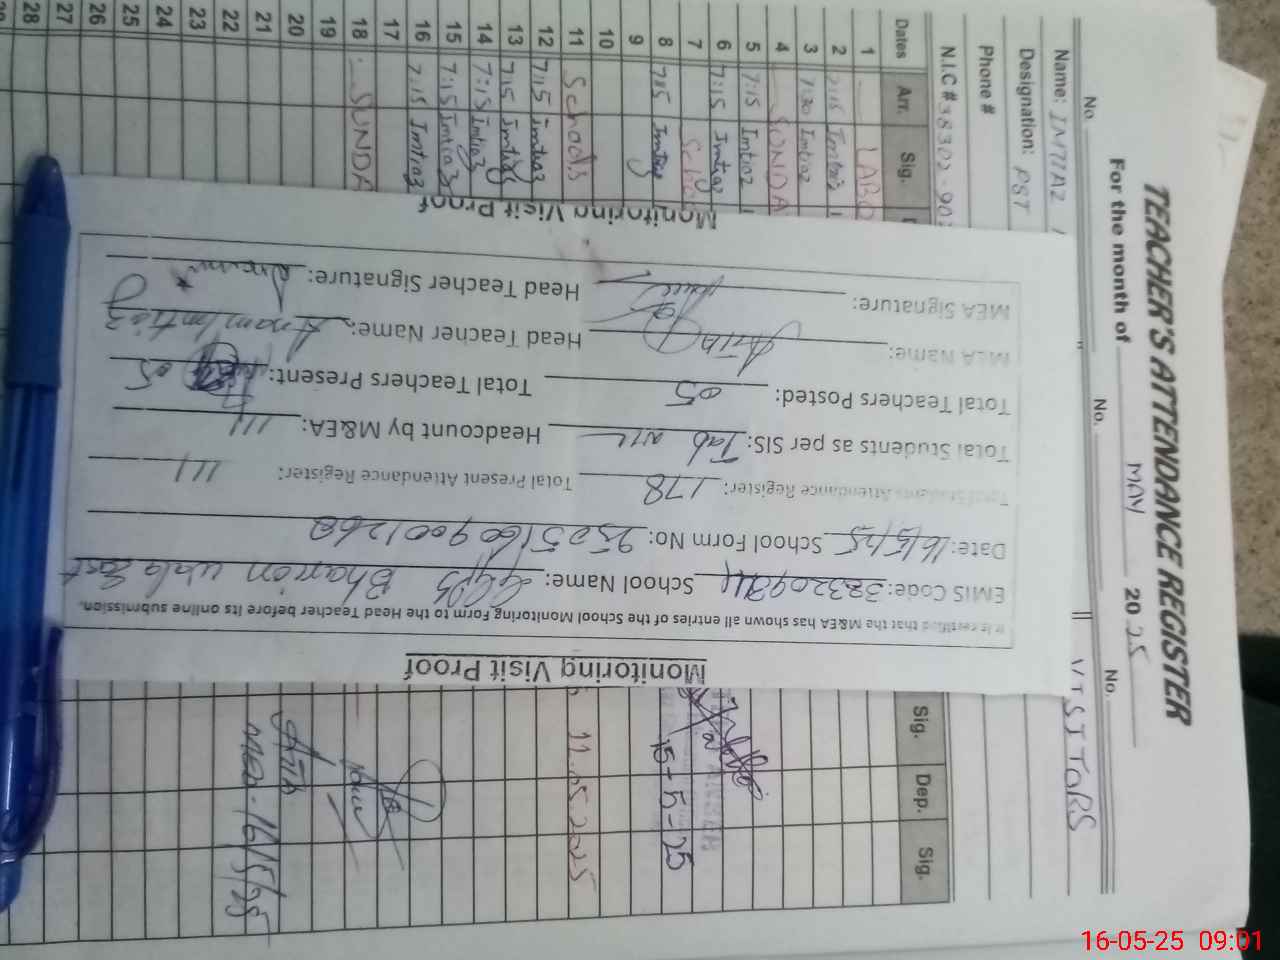 TEACHER'S ATTENDANCE REGISTER
For the month of MAY 2025
No. No. No.
Name: IMTIAZ
VISITORS
Designation: PST
Phone #
N.I.C # 38302-90
Dates Arr. Sig.
Sig. Dep. Sig.
1 LABO
2 7:15 Imtiaz
3 7:30 Imtiaz
4 SUNDA
5 7:15 Imtiaz
6 7:15 Imtiaz
7 Scho
8 7:15 Imtiaz
15-5-25
9
10
11 Schools
11.05.2025
12 7:15 imtiaz
13 7:15 Imtiaz
14 7:15 Imtiaz
15 7:15 Imtiaz
16 7:15 Imtiaz
17
18 SUNDA
19
20
21
22
23
24
25
26
27
28
16/5/25
Monitoring Visit Proof
It is certified that the M&EA has shown all entries of the School Monitoring Form to the Head Teacher before its online submission.
EMIS Code: School Name: GGPS Bharion wala East
Date: 16/5/25 School Form No:
Total Students Attendance Register: 178 Total Present Attendance Register: 111
Total Students as per SIS: Tab Headcount by M&EA: 111
Total Teachers Posted: 05 Total Teachers Present: 05
MEA Name: Head Teacher Name: Anam Imtiaz
MEA Signature: Head Teacher Signature:
Monitoring Visit Proof
16-05-25 09:01